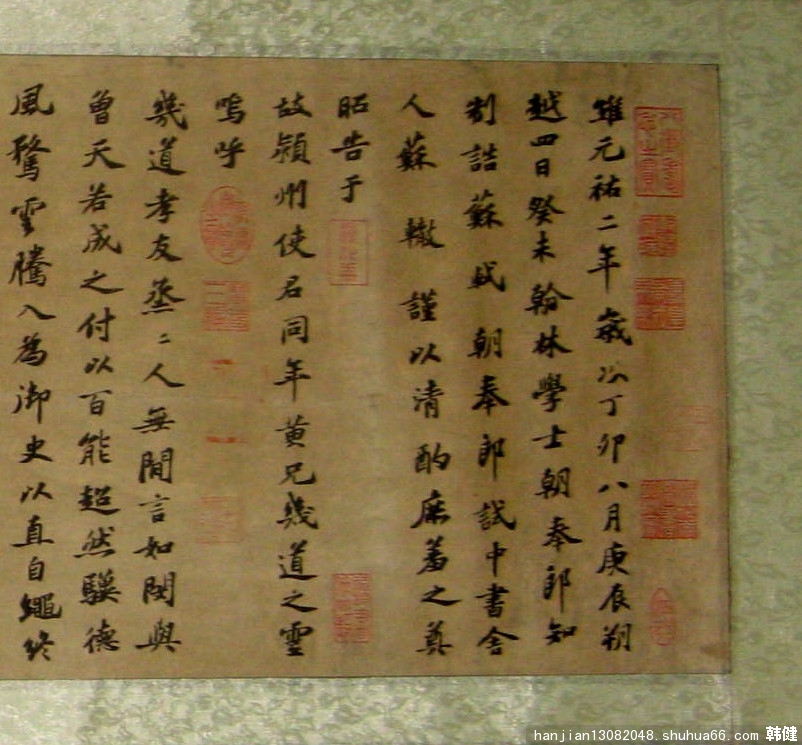 維元祐二年歲次丁卯八月庚辰朔
越四日癸未翰林學士朝奉郎知
制誥蘇軾朝奉郎試中書舍
人蘇轍謹以清酌庶羞之奠
昭告于
故潁州使君同年黄兄幾道之靈
嗚呼
幾道孝友烝〻人無間言如閔與
曾天若成之付以百能超然驥德
風鶩雲騰入為御史以直自繩終
hanjian13082048.shuhua66.com 韩健